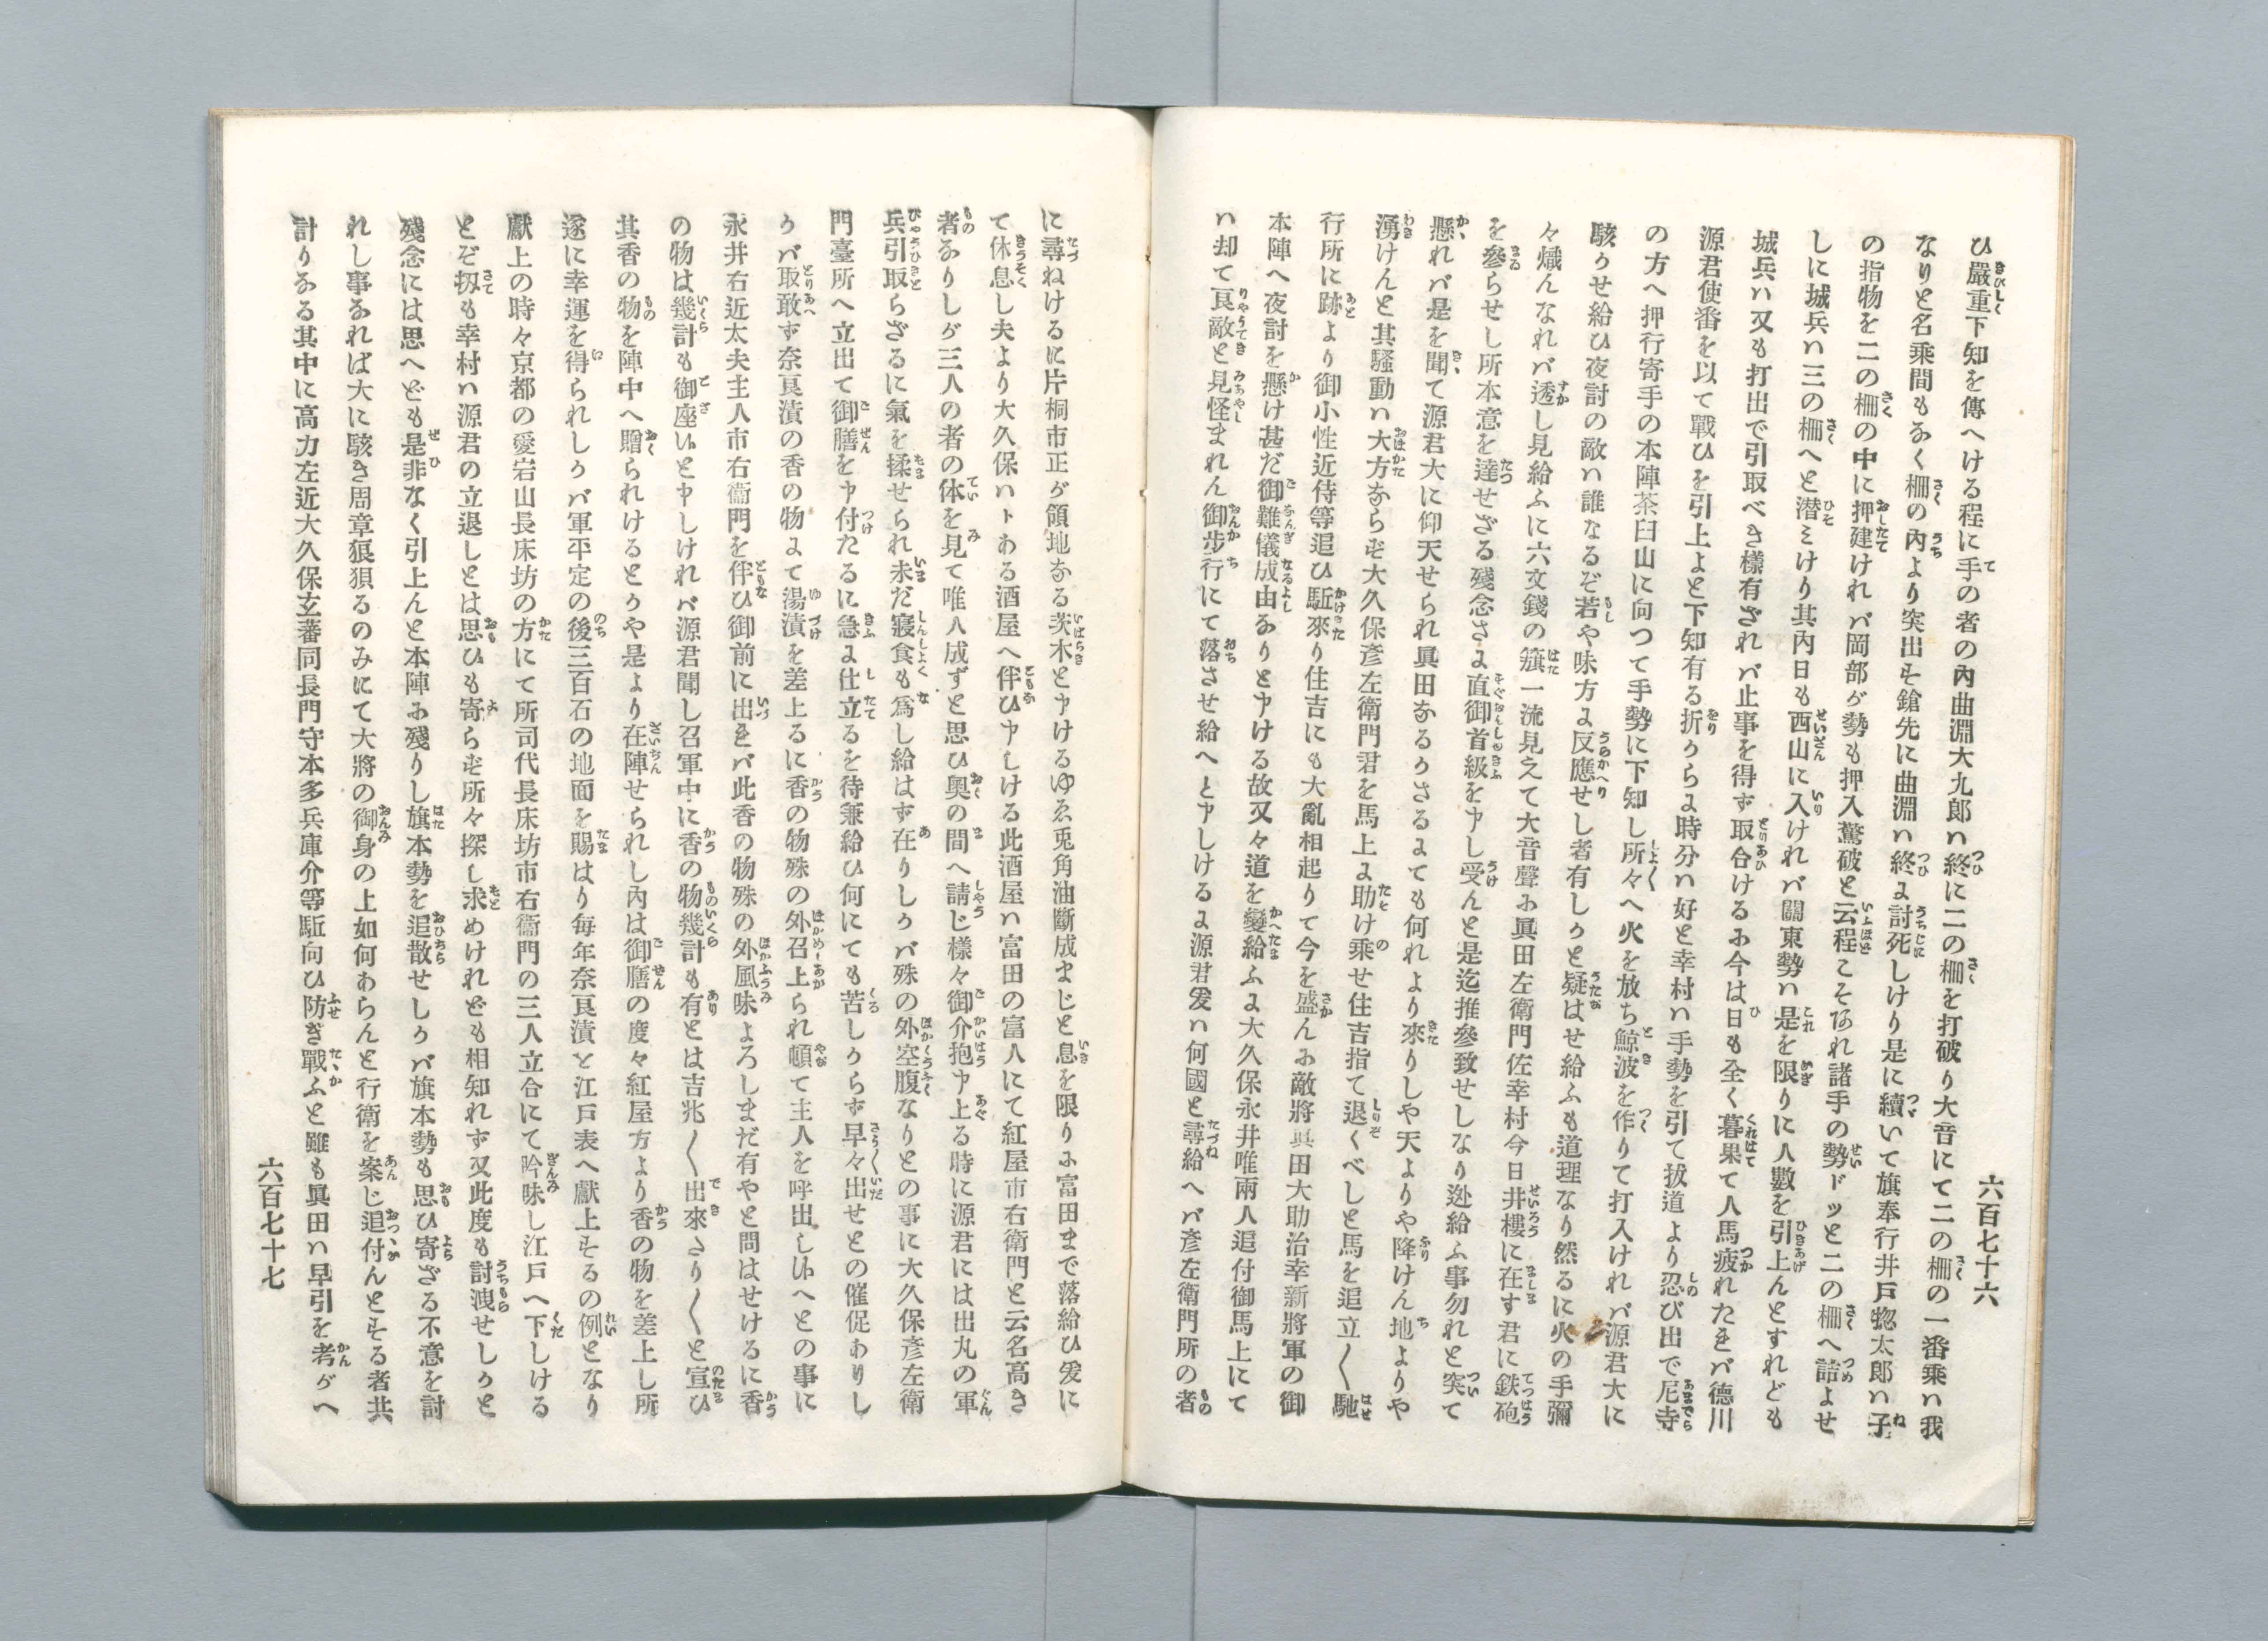 六百七十六
ひ嚴重下知を傳へける程に手の者の內曲淵大九郎ハ終に二の柵を打破り大音にて二の柵の一番乘ハ我
なりと名乘間もなく柵の內より突出す鎗先に曲淵ハ終に討死しけり是に續いて旗奉行井戸惣太郎ハ子
の指物を二の柵の中に押建けれバ岡部が勢も押入驚破と云程こそあれ諸手の勢ドッと二の柵へ詰よせ
しに城兵ハ三の柵へと潜ミけり其內日も西山に入けれバ關東勢ハ是を限りに人數を引上んとすれども
城兵ハ又も打出で引取べき樣有ざれバ止事を得ず取合けるに今は日も全く暮果て人馬疲れたれバ德川
源君使番を以て戰ひを引上よと下知有る折からに時分ハ好と幸村ハ手勢を引て拔道より忍び出で尼寺
の方へ押行寄手の本陣茶臼山に向つて手勢に下知し所々へ火を放ち鯨波を作りて打入けれバ源君大に
駭かせ給ひ夜討の敵ハ誰なるぞ若や味方に反應せし者有しかと疑はせ給ふも道理なり然るに火の手彌
々熾んなれバ透し見給ふに六文錢の籏一流見えて大音聲に眞田左衛門佐幸村今日井樓に在す君に鉄砲
を參らせし所本意を達せざる殘念さに直御首級を申し受んと是迄推參致せしなり迯給ふ事勿れと突て
懸れバ是を聞て源君大に仰天せられ眞田なるかさるにても何れより來りしや天よりや降けん地よりや
湧けんと其騷動ハ大方ならず大久保彦左衛門君を馬上に助け乘せ住吉指て退くべしと馬を追立〱馳
行所に跡より御小性近侍等追ひ駈來り住吉にも大亂相起りて今を盛んに敵將眞田大助治幸新將軍の御
本陣へ夜討を懸け甚だ御難儀成由なりと申ける故又々道を變給ふに大久保永井唯兩人追付御馬上にて
ハ却て良敵と見怪まれん御步行にて落させ給へと申しけるに源君爰ハ何國と尋給へバ彦左衛門所の者
に尋ねけるに片桐市正が領地なる茨木と申けるゆゑ兎角油斷成まじと息を限りに富田まで落給ひ爰に
て休息し夫より大久保ハトある酒屋へ伴ひ申しける此酒屋ハ富田の富人にて紅屋市右衛門と云名高き
者なりしが三人の者の体を見て唯人成ずと思ひ奧の間へ請じ樣々御介抱申上る時に源君には出丸の軍
兵引取らざるに氣を揉せられ未だ寢食も爲し給はず在りしかバ殊の外空腹なりとの事に大久保彦左衛
門臺所へ立出て御膳を申付たるに急に仕立るを待兼給ひ何にても苦しからず早々出せとの催促ありし
かバ取敢ず奈良漬の香の物にて湯漬を差上るに香の物殊の外召上られ頓て主人を呼出し候へとの事に
永井右近太夫主人市右衞門を伴ひ御前に出れバ此香の物殊の外風味よろしまだ有やと問はせけるに香
の物は幾計も御座候と申しけれバ源君聞し召軍中に香の物幾計も有とは吉兆〱出來さり〱と宣ひ
其香の物を陣中へ贈られけるとかや是より在陣せられし內は御膳の度々紅屋方より香の物を差上し所
遂に幸運を得られしかバ軍平定の後三百石の地面を賜はり每年奈良漬を江戸表へ獻上するの例となり
獻上の時々京都の愛宕山長床坊の方にて所司代長床坊市右衞門の三人立合にて吟味し江戸へ下しける
とぞ扨も幸村ハ源君の立退しとは思ひも寄らず所々探し求めけれども相知れず又此度も討洩せしかと
殘念には思へども是非なく引上んと本陣に殘りし旗本勢を追散せしかバ旗本勢も思ひ寄ざる不意を討
れし事なれば大に駭き周章狼狽るのみにて大將の御身の上如何あらんと行衛を案じ追付んとする者共
計りなる其中に高力左近大久保玄蕃同長門守本多兵庫介等駈向ひ防ぎ戰ふと雖も眞田ハ早引を考がへ
六百七十七